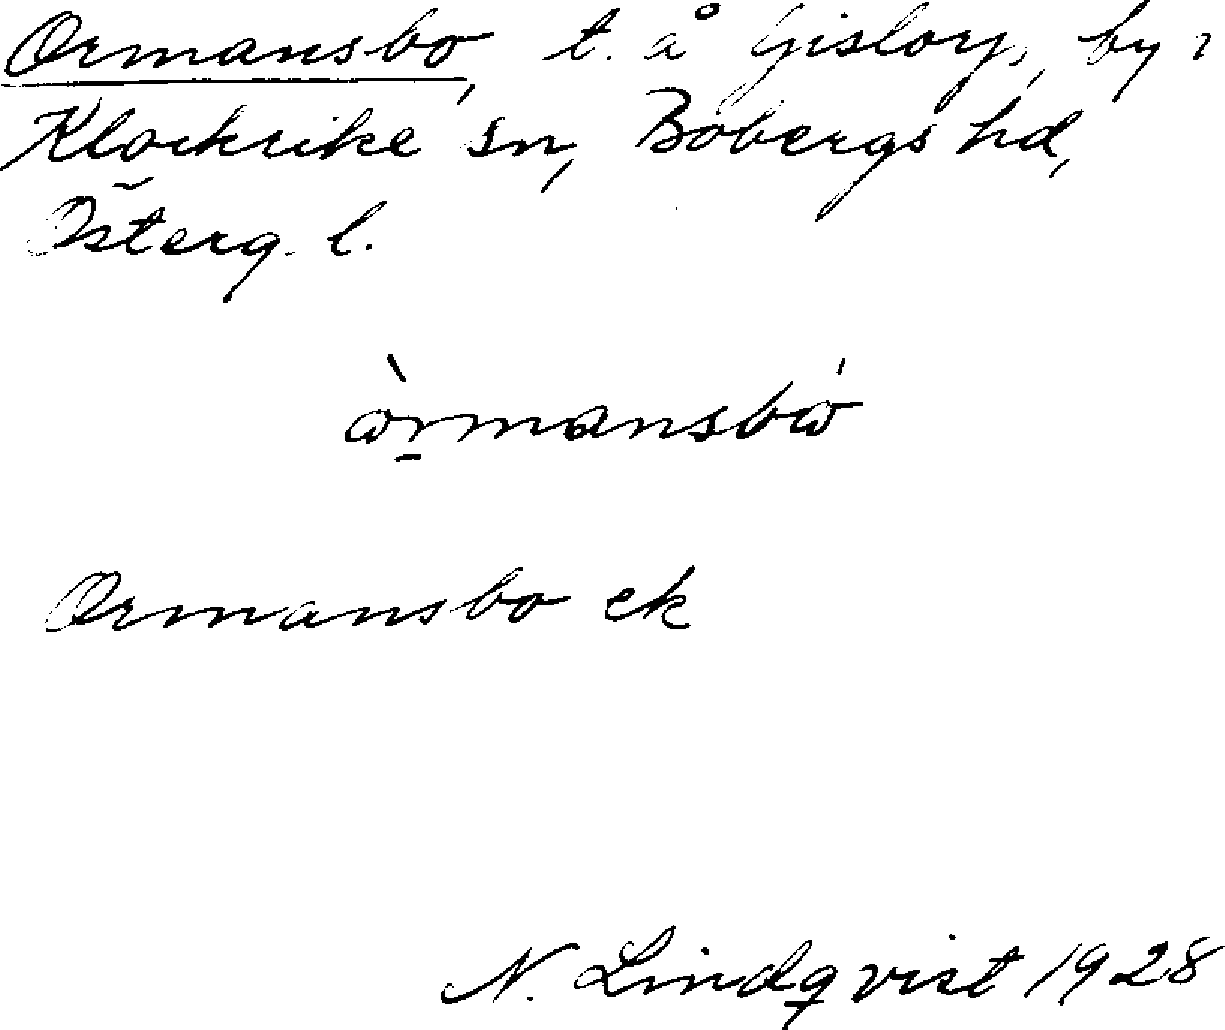 Ormansbo, t. å Gislorp, by i
Klockrike sn, Bobergs hd,
Österg. l.
òrmansbó
Ormansbo ek
N. Lindqvist 1928